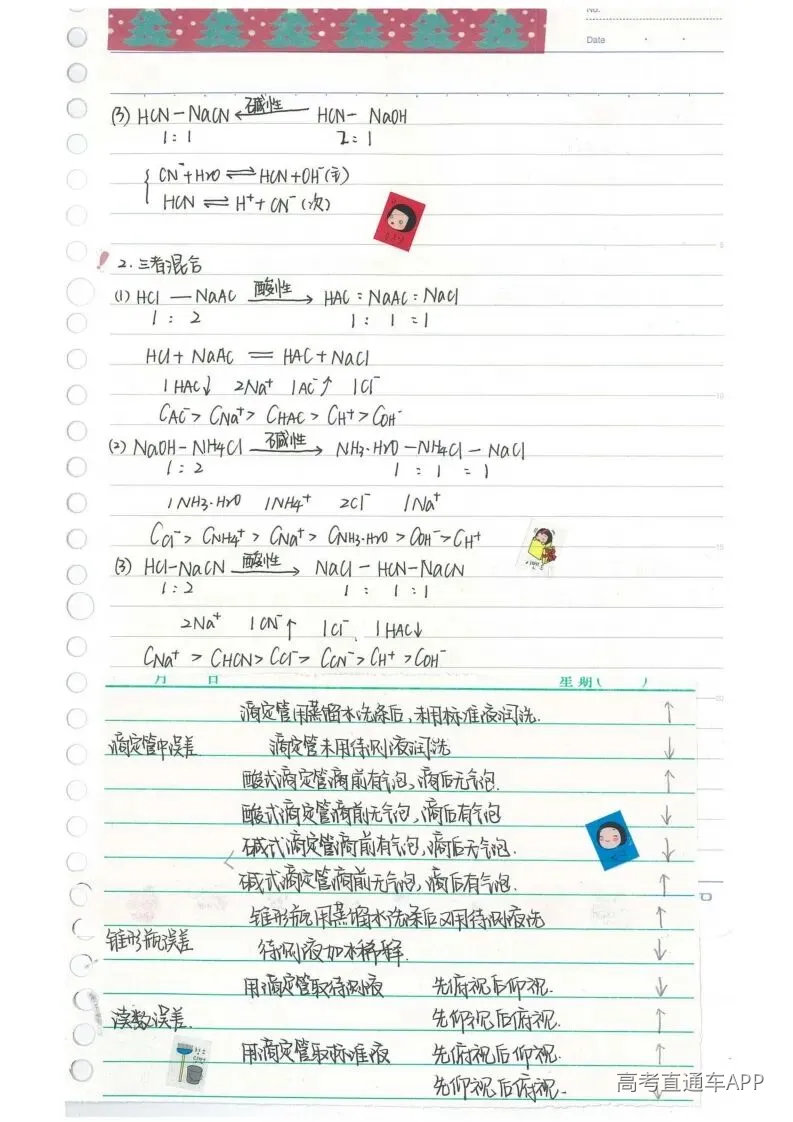 No.
Date
(3) HCN-NaCN ←碱性— HCN- NaOH
1:1 2:1
CN⁻+H₂O ⇌ HCN+OH⁻(主)
HCN ⇌ H⁺+CN⁻(次)
! 2.三者混合
(1) HCl — NaAC —酸性→ HAC:NaAC:NaCl
1 : 2 1 : 1 =1
HCl+NaAC = HAC+NaCl
1HAC↓ 2Na⁺ 1AC⁻↑ 1Cl⁻
CAC⁻> CNa⁺> CHAC> CH⁺> COH⁻
(2) NaOH-NH4Cl —碱性→ NH3·H2O -NH4Cl - NaCl
1:2 1 : 1 = 1
1NH3·H2O 1NH4⁺ 2Cl⁻ 1Na⁺
CCl⁻> CNH4⁺> CNa⁺> CNH3·H2O > COH⁻> CH⁺
(3) HCl-NaCN —酸性→ NaCl - HCN-NaCN
1:2 1 : 1:1
2Na⁺ 1CN⁻↑ 1Cl⁻ 1HAC↓
CNa⁺ > CHCN> CCl⁻> CCN⁻> CH⁺ >COH⁻
月 日 星期( )
滴定管用蒸馏水洗涤后,未用标准液润洗. ↑
滴定管中误差 滴定管未用待测液润洗 ↓
酸式滴定管滴前有气泡,滴后无气泡. ↑
酸式滴定管滴前无气泡,滴后有气泡 ↓
碱式滴定管滴前有气泡,滴后无气泡. ↓
碱式滴定管滴前无气泡,滴后有气泡. ↑
锥形瓶用蒸馏水洗涤后又用待测液洗 ↑
锥形瓶误差 待测液加水稀释. ↓
用滴定管取待测液 先俯视后仰视. ↓
读数误差. 先仰视后俯视. ↑
用滴定管取标准液 先俯视后仰视. ↑
先仰视后俯视. ↓
高考直通车APP